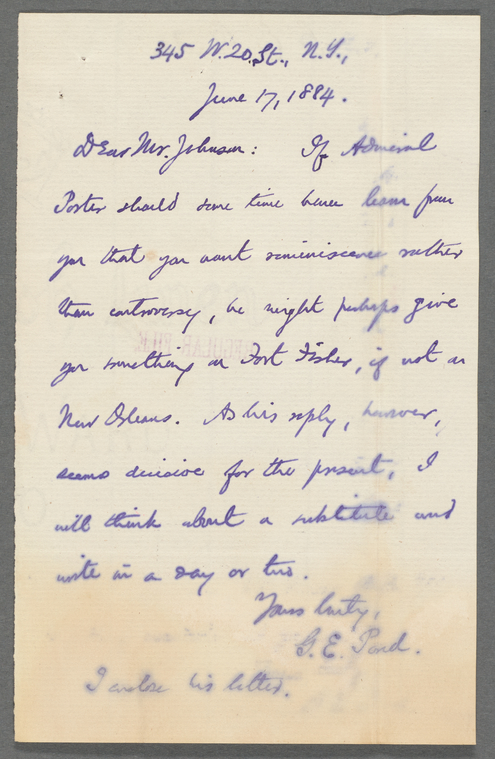 345 W. 20. St., N.Y.,
June 17, 1884.
Dear Mr. Johnson: If Admiral
Porter should some time have learn from
you that you want reminiscences rather
than controversy, he might perhaps give
you something on Fort Fisher, if not on
New Orleans. As his reply, however,
seems decisive for the present, I
will think about a substitute and
write in a day or two.
Yours truly,
G. E. Pond.
I enclose his letter.